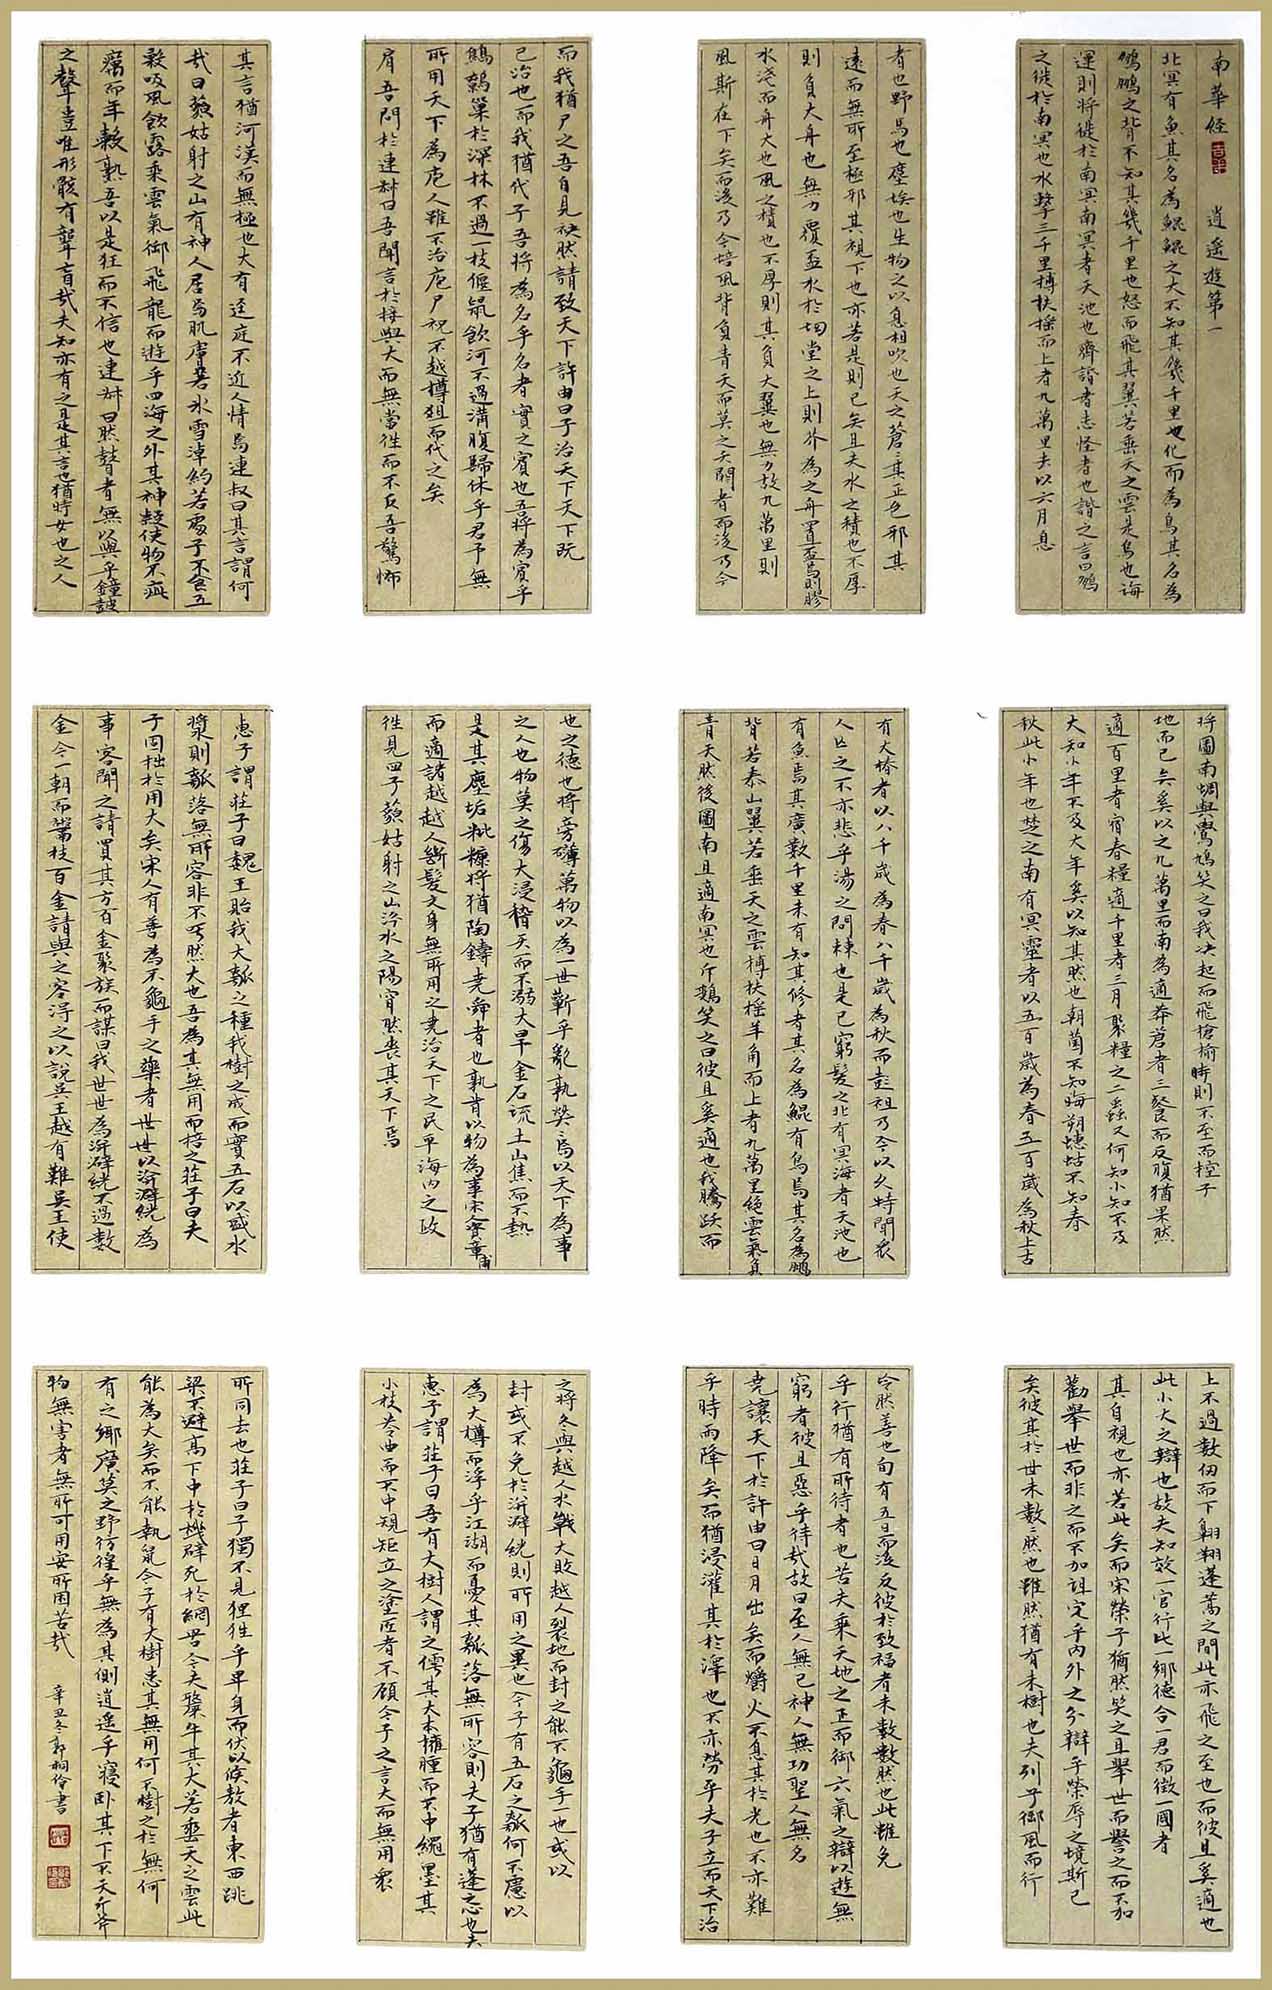 南華經 逍遙遊第一
北冥有魚其名為鯤鯤之大不知其幾千里也化而為鳥其名為
鵬鵬之背不知其幾千里也怒而飛其翼若垂天之雲是鳥也海
運則將徙於南冥南冥者天池也齊諧者志怪者也諧之言曰鵬
之徙於南冥也水擊三千里摶扶搖而上者九萬里去以六月息
者也野馬也塵埃也生物之以息相吹也天之蒼〻其正色邪其
遠而無所至極邪其視下也亦若是則已矣且夫水之積也不厚
則負大舟也無力覆盃水於坳堂之上則芥為之舟置盃焉則膠
水淺而舟大也風之積也不厚則其負大翼也無力故九萬里則
風斯在下矣而後乃今培風背負青天而莫之夭閼者而後乃今
而我猶尸之吾自見缺然請致天下許由曰子治天下天下既
已治也而我猶代子吾將為名乎名者實之賓也吾將為賓乎
鷦鷯巢於深林不過一枝偃鼠飲河不過滿腹歸休乎君予無
所用天下為庖人雖不治庖尸祝不越樽俎而代之矣
肩吾問於連叔曰吾聞言於接輿大而無當往而不反吾驚怖
其言猶河漢而無極也大有逕庭不近人情焉連叔曰其言謂何
哉曰藐姑射之山有神人居焉肌膚若冰雪淖約若處子不食五
穀吸風飲露乘雲氣御飛龍而遊乎四海之外其神凝使物不疵
癘而年穀熟吾以是狂而不信也連叔曰然瞽者無以與乎鐘鼓
之聲豈唯形骸有聾盲哉夫知亦有之是其言也猶時女也之人
將圖南蜩與鷽鳩笑之曰我決起而飛搶榆時則不至而控于
地而已矣奚以之九萬里而南為適莽蒼者三飡而反腹猶果然
適百里者宿舂糧適千里者三月聚糧之二蟲又何知小知不及
大知小年不及大年奚以知其然也朝菌不知晦朔蟪蛄不知春
秋此小年也楚之南有冥靈者以五百歲為春五百歲為秋上古
有大椿者以八千歲為春八千歲為秋而彭祖乃今以久特聞眾
人匹之不亦悲乎湯之問棘也是已窮髮之北有冥海者天池也
有魚焉其廣數千里未有知其修者其名為鯤有鳥焉其名為鵬
背若泰山翼若垂天之雲摶扶搖羊角而上者九萬里絕雲氣負
青天然後圖南且適南冥也斥鴳笑之曰彼且奚適也我騰躍而
也之德也將旁礡萬物以為一世蘄乎亂孰獘〻焉以天下為事
之人也物莫之傷大浸稽天而不溺大旱金石流土山焦而不熱
是其塵垢秕糠將猶陶鑄堯舜者也孰肯以物為事宋人資章甫
而適諸越越人斷髮文身無所用之堯治天下之民平海內之政
往見四子藐姑射之山汾水之陽窅然喪其天下焉
惠子謂莊子曰魏王貽我大瓠之種我樹之成而實五石以盛水
漿則瓠落無所容非不呺然大也吾為其無用而掊之莊子曰夫
子固拙於用大矣宋人有善為不龜手之藥者世世以洴澼絖為
事客聞之請買其方百金聚族而謀曰我世世為洴澼絖不過數
金今一朝而鬻技百金請與之客得之以說吳王越有難吳王使
上不過數仞而下翱翔蓬蒿之間此亦飛之至也而彼且奚適也
此小大之辯也故夫知效一官行比一鄉德合一君而徵一國者
其自視也亦若此矣而宋榮子猶然笑之且舉世而譽之而不加
勸舉世而非之而不加沮定乎內外之分辯乎榮辱之境斯已
矣彼其於世未數〻然也雖然猶有未樹也夫列子御風而行
泠然善也旬有五日而後反彼於致福者未數數然也此雖免
乎行猶有所待者也若夫乘天地之正而御六氣之辯以遊無
窮者彼且惡乎待哉故曰至人無己神人無功聖人無名
堯讓天下於許由曰日月出矣而爝火不息其於光也不亦難
乎時雨降矣而猶浸灌其於澤也不亦勞乎夫子立而天下治
之將冬與越人水戰大敗越人裂地而封之能不龜手一也或以
封或不免於洴澼絖則所用之異也今子有五石之瓠何不慮以
為大樽而浮乎江湖而憂其瓠落無所容則夫子猶有蓬之心也夫
惠子謂莊子曰吾有大樹人謂之樗其大本擁腫而不中繩墨其
小枝卷曲而不中規矩立之塗匠者不顧今子之言大而無用衆
所同去也莊子曰子獨不見狸狌乎卑身而伏以候敖者東西跳
梁不避高下中於機辟死於網罟今夫斄牛其大若垂天之雲此
能為大矣而不能執鼠今子有大樹患其無用何不樹之於無何
有之鄉廣莫之野彷徨乎無為其側逍遙乎寢卧其下不夭斤斧
物無害者無所可用安所困苦哉 辛丑冬郭桐伶書